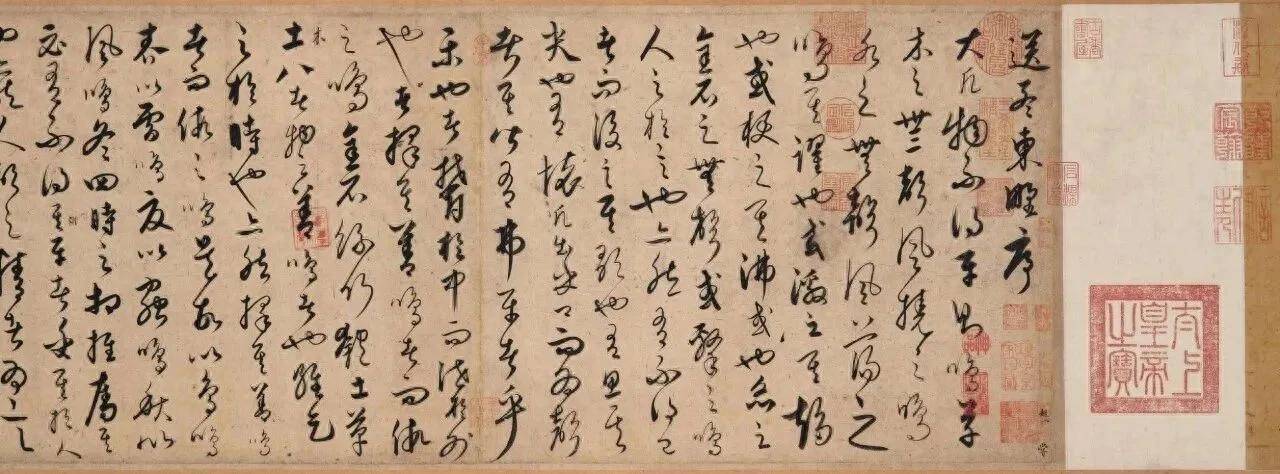 太上皇帝之寶
送孟東野序
大凡物不得平則鳴草
木之無聲風撓之鳴
水之無聲風蕩之
鳴其躍也或激之其趨
也或梗之其沸或也炙之
金石之無聲或擊之鳴
人之於言也亦然有不得已
者而後言其歌也有思其
哭也有懷凡出乎口而為聲
者其皆有弗平者乎
樂也者鬱於中而泄於外
也者擇其善鳴者而假
之鳴金石絲竹匏土革
木八者物之善鳴者也維天
之於時也亦然擇其善鳴
者而假之鳴是故以鳥鳴
春以雷鳴夏以蟲鳴秋以
風鳴冬四時之相推奪其
必有不得其平者乎其於人
也亦然人聲之精者為言